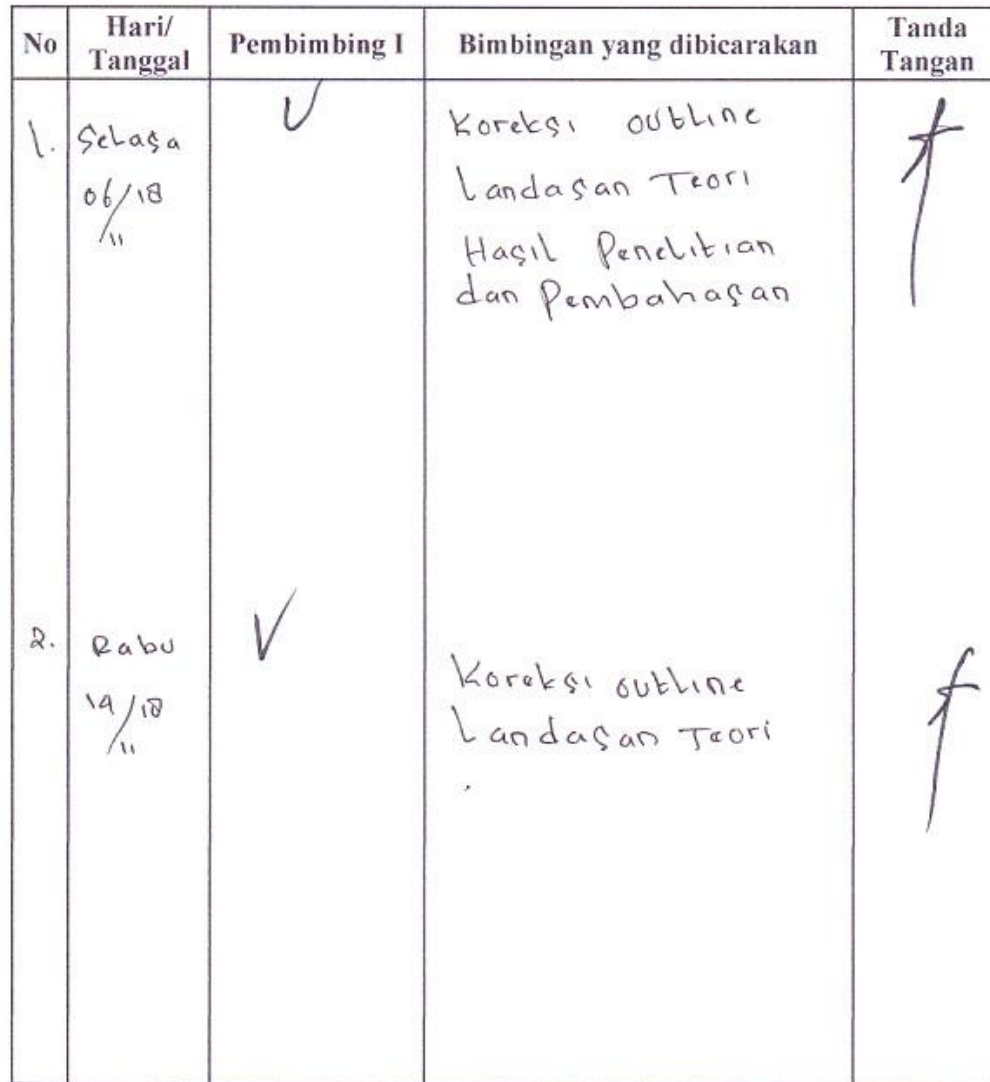 No Hari/ Tanggal Pembimbing I Bimbingan yang dibicarakan Tanda Tangan
1. Selasa Koreksi outline
06/18 Landasan Teori
/11 Hasil Penelitian
dan Pembahasan
2. Rabu Koreksi outline
14/18 Landasan Teori
/11